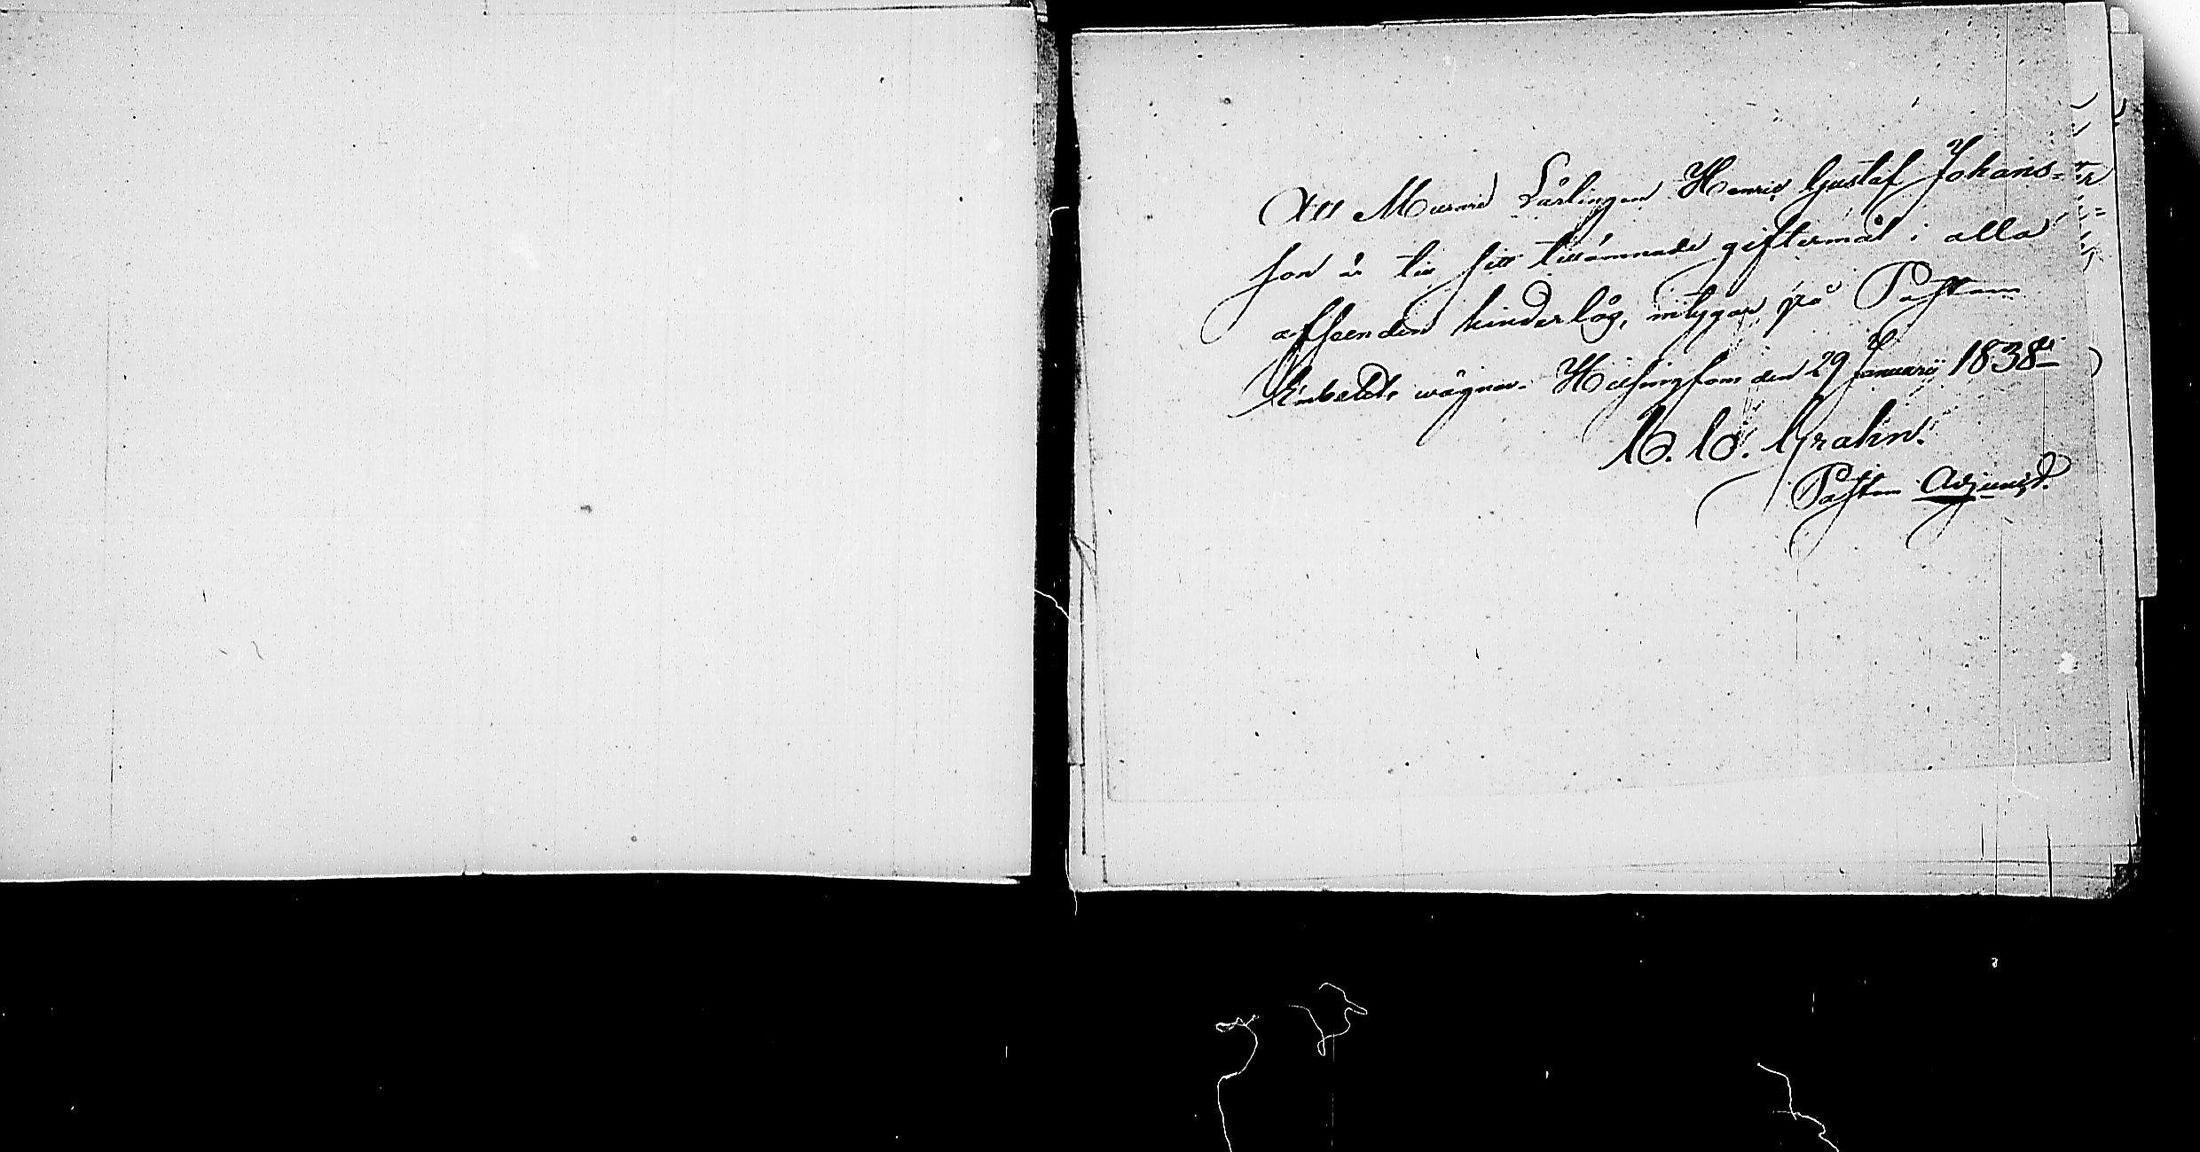 Att Murare Lärlingen Henric Gustaf Johans=
son är till sitt tillämnade giftermål i alla
afseenden hinderlös, intygar på Pastors
Embetets wägnar. Helsingfors den 29 Januarij 1838.
Grahn.
Pastors Adjunct.